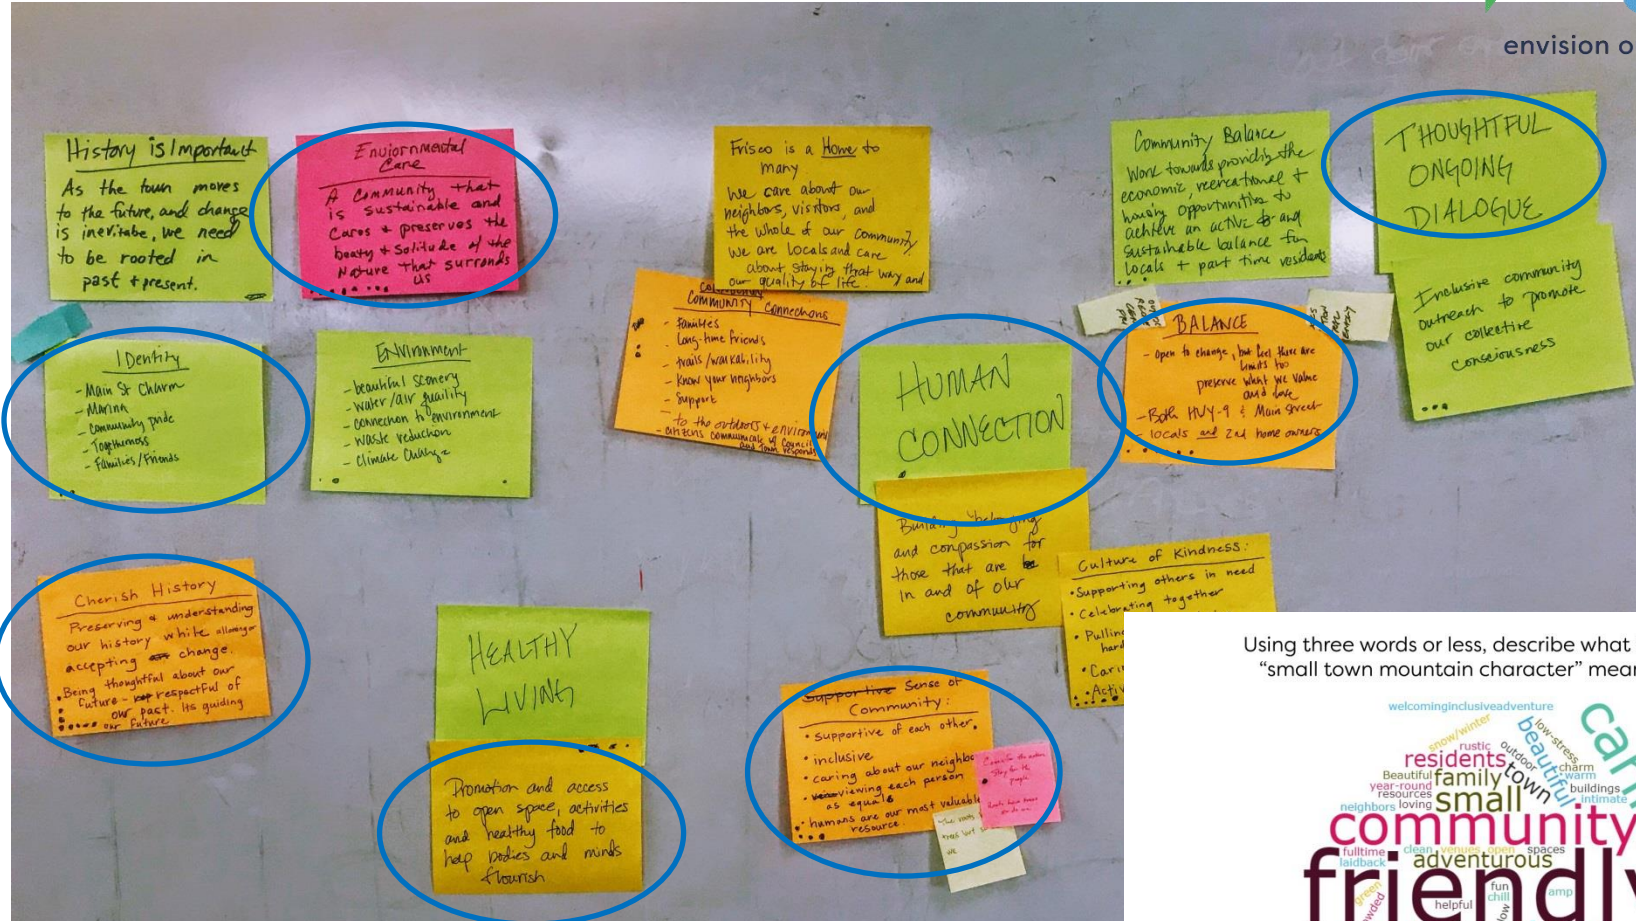 envision o
History is Important
As the town moves
to the future, and change
is inevitabe, we need
to be rooted in
past + present.
Enviornmental
Care
A Community that
is sustainable and
Cares + preserves the
beaty + Solitude of the
Nature that surronds
us
Frisco is a Home to
many
We care about our
neighbors, visitors, and
the whole of our community.
We are locals and care
about staying that way and
our quality of life.
Community Balance
Work towards providing the
economic, recreational +
housing opportunities to
achieve an active and
sustainable balance for
locals + part time residents
THOUGHTFUL
ONGOING
DIALOGUE
Inclusive community
outreach to promote
our collective
consciousness
Identity
- Main St Charm
- Marina
- Community pride
- Togetherness
- Families/Friends
ENVIRONMENT
- beautiful scenery
- water/air quality
- connection to environment
- waste reduction
- climate change
Community Connections
- Families
- Long-time friends
- trails/walkability
- Know your neighbors
- Support
- to the outdoors + environment
- citizens communicate w/ Council
and Town responds
HUMAN
CONNECTION
Building belonging
and compassion for
those that are
in and of our
community
BALANCE
- Open to change, but feel there are
limits too
preserve what we value
and love
- Both HWY-9 & Main Street
- locals and 2nd home owners
Cherish History
Preserving & understanding
our history while
accepting change.
Being thoughtful about our
future - respectful of
our past. Its guiding
our future
HEALTHY
LIVING
Promotion and access
to open space, activities
and healthy food to
help bodies and minds
flourish
Supportive Sense of
Community:
• supportive of each other
• inclusive
• caring about our neighbo
• viewing each person
as equals
• humans are our most valuable
resource.
Culture of Kindness:
• Supporting others in need
• Celebrating together
• Pulling
hard
• Cari
• Activ
Using three words or less, describe what
"small town mountain character" mean
welcominginclusiveadventure
snow/winter
rustic
outdoor
beautiful
low-stress
car
residents
charm
Beautiful
family
town
warm
year-round
resources
buildings
neighbors
loving
small
intimate
community
fulltime
clean
venues
open
spaces
laidback
adventurous
friendly
green
fun
chill
amp
helpful